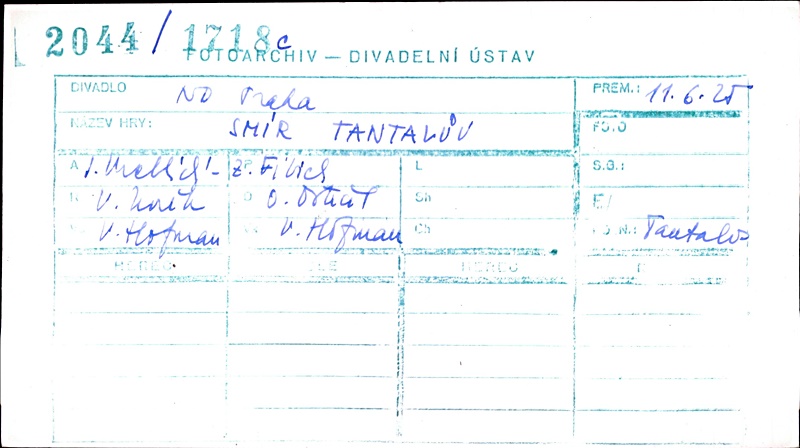 2044/1718c
FOTOARCHIV — DIVADELNÍ ÚSTAV
DIVADLO ND Praha PREM.: 11.6.25
NÁZEV HRY: SMÍR TANTALŮV FOTO
A J. Vrchlický Z. Fibich L S.G.:
V. Novák O. Ostrčil Sh E/
V. Hofman V. Hofman Ch Tantalos
HEREC HEREC